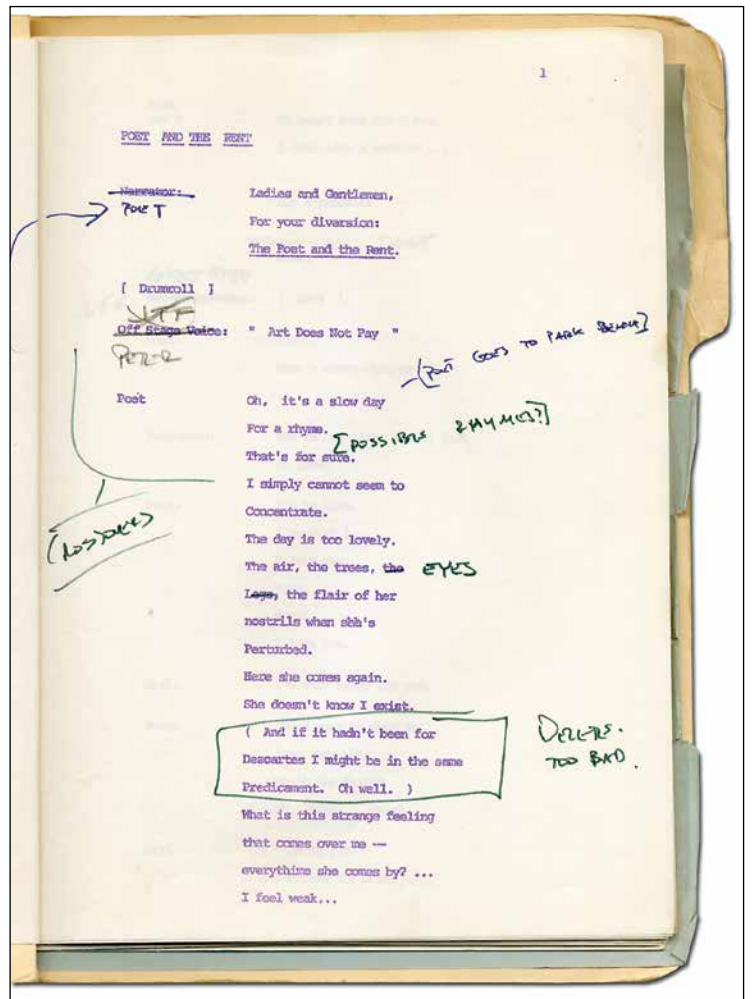 1
POET AND THE RENT
Narrator: Ladies and Gentlemen,
POET
For your diversion:
The Poet and the Rent.
[ Drumroll ]
VTF
Off Stage Voice: " Art Does Not Pay "
PETER
(POET GOES TO PARK BENCH]
Poet Oh, it's a slow day
For a rhyme.
[POSSIBLE RHYMES?]
That's for sure.
I simply cannot seem to
Concentrate.
The day is too lovely.
The air, the trees, the EYES
Legs, the flair of her
nostrils when shh's
Perturbed.
Here she comes again.
She doesn't know I exist.
( And if it hadn't been for
Descartes I might be in the same
Predicament. Oh well. )
DELETE.
TOO BAD.
What is this strange feeling
that comes over me --
everythime she comes by? ...
I feel weak...